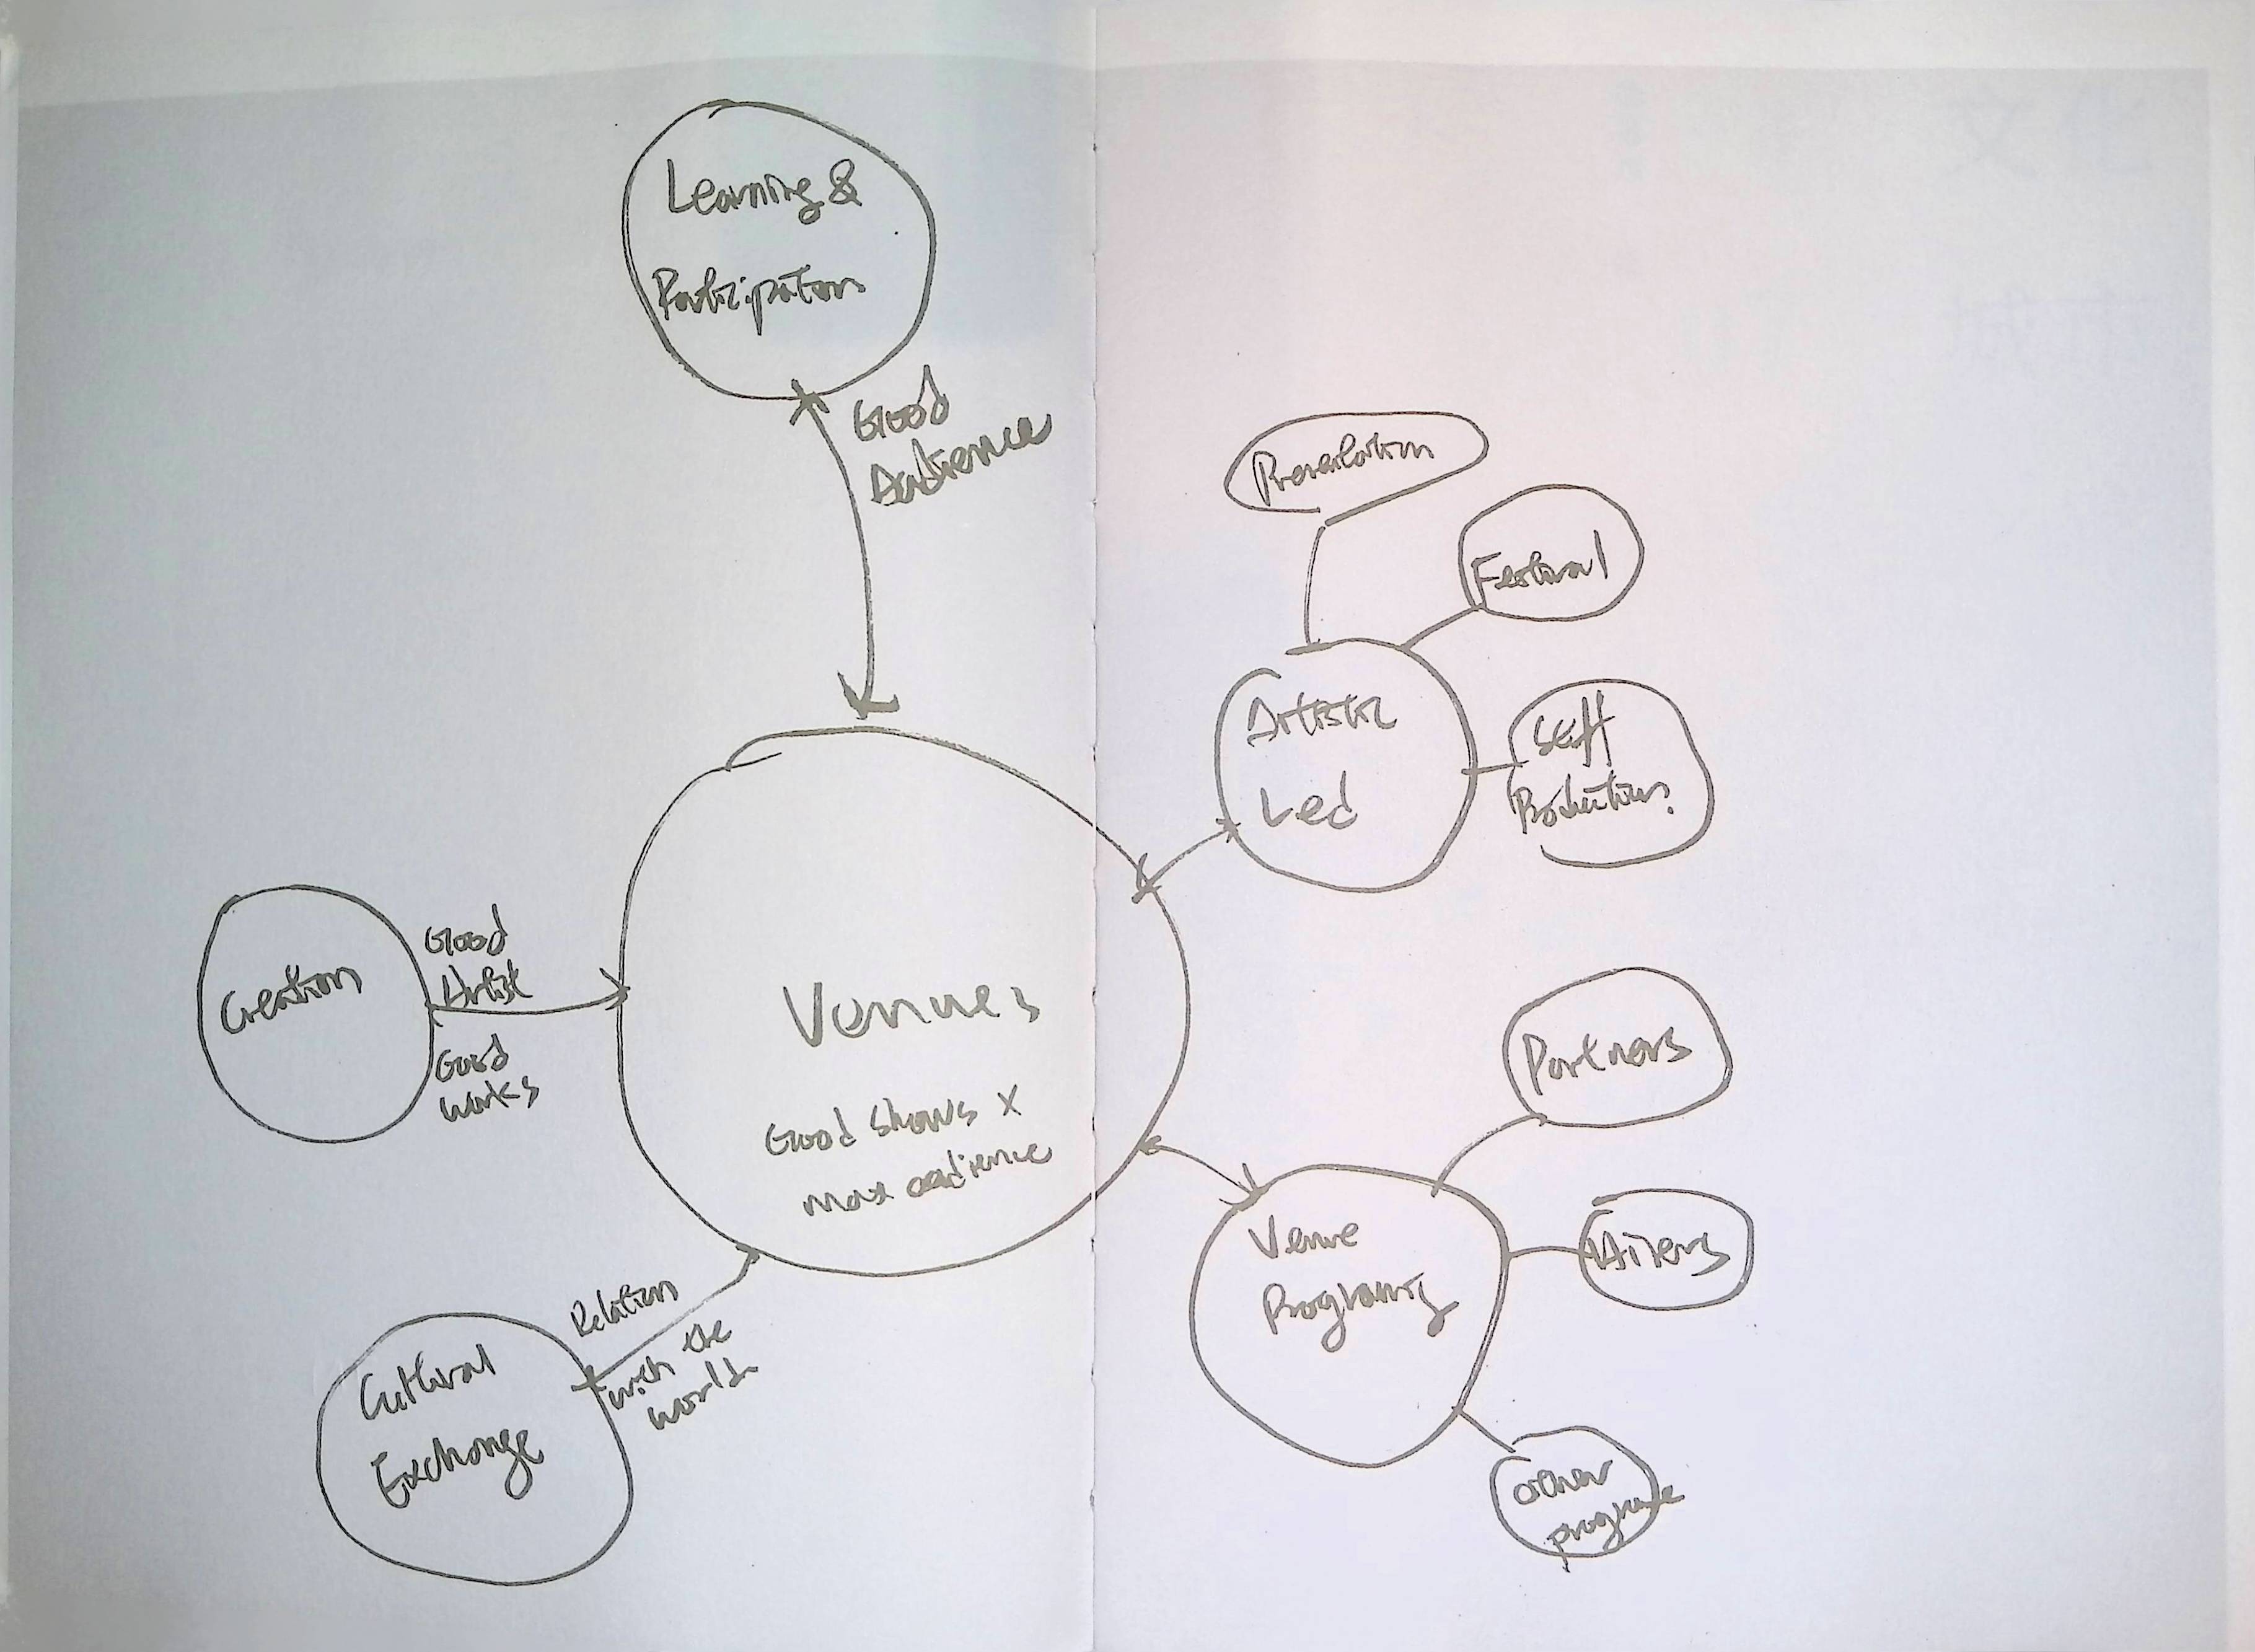 Learning &
Participation
Good
Audience
Presentation
Festival
Artistic
Led
Self
Productions
Creation
Good
Artist
Good
works
Venues
Good shows x
max audience
Partners
Venue
Programing
Hirers
other
programe
Relation
with the
world
Cultural
Exchange